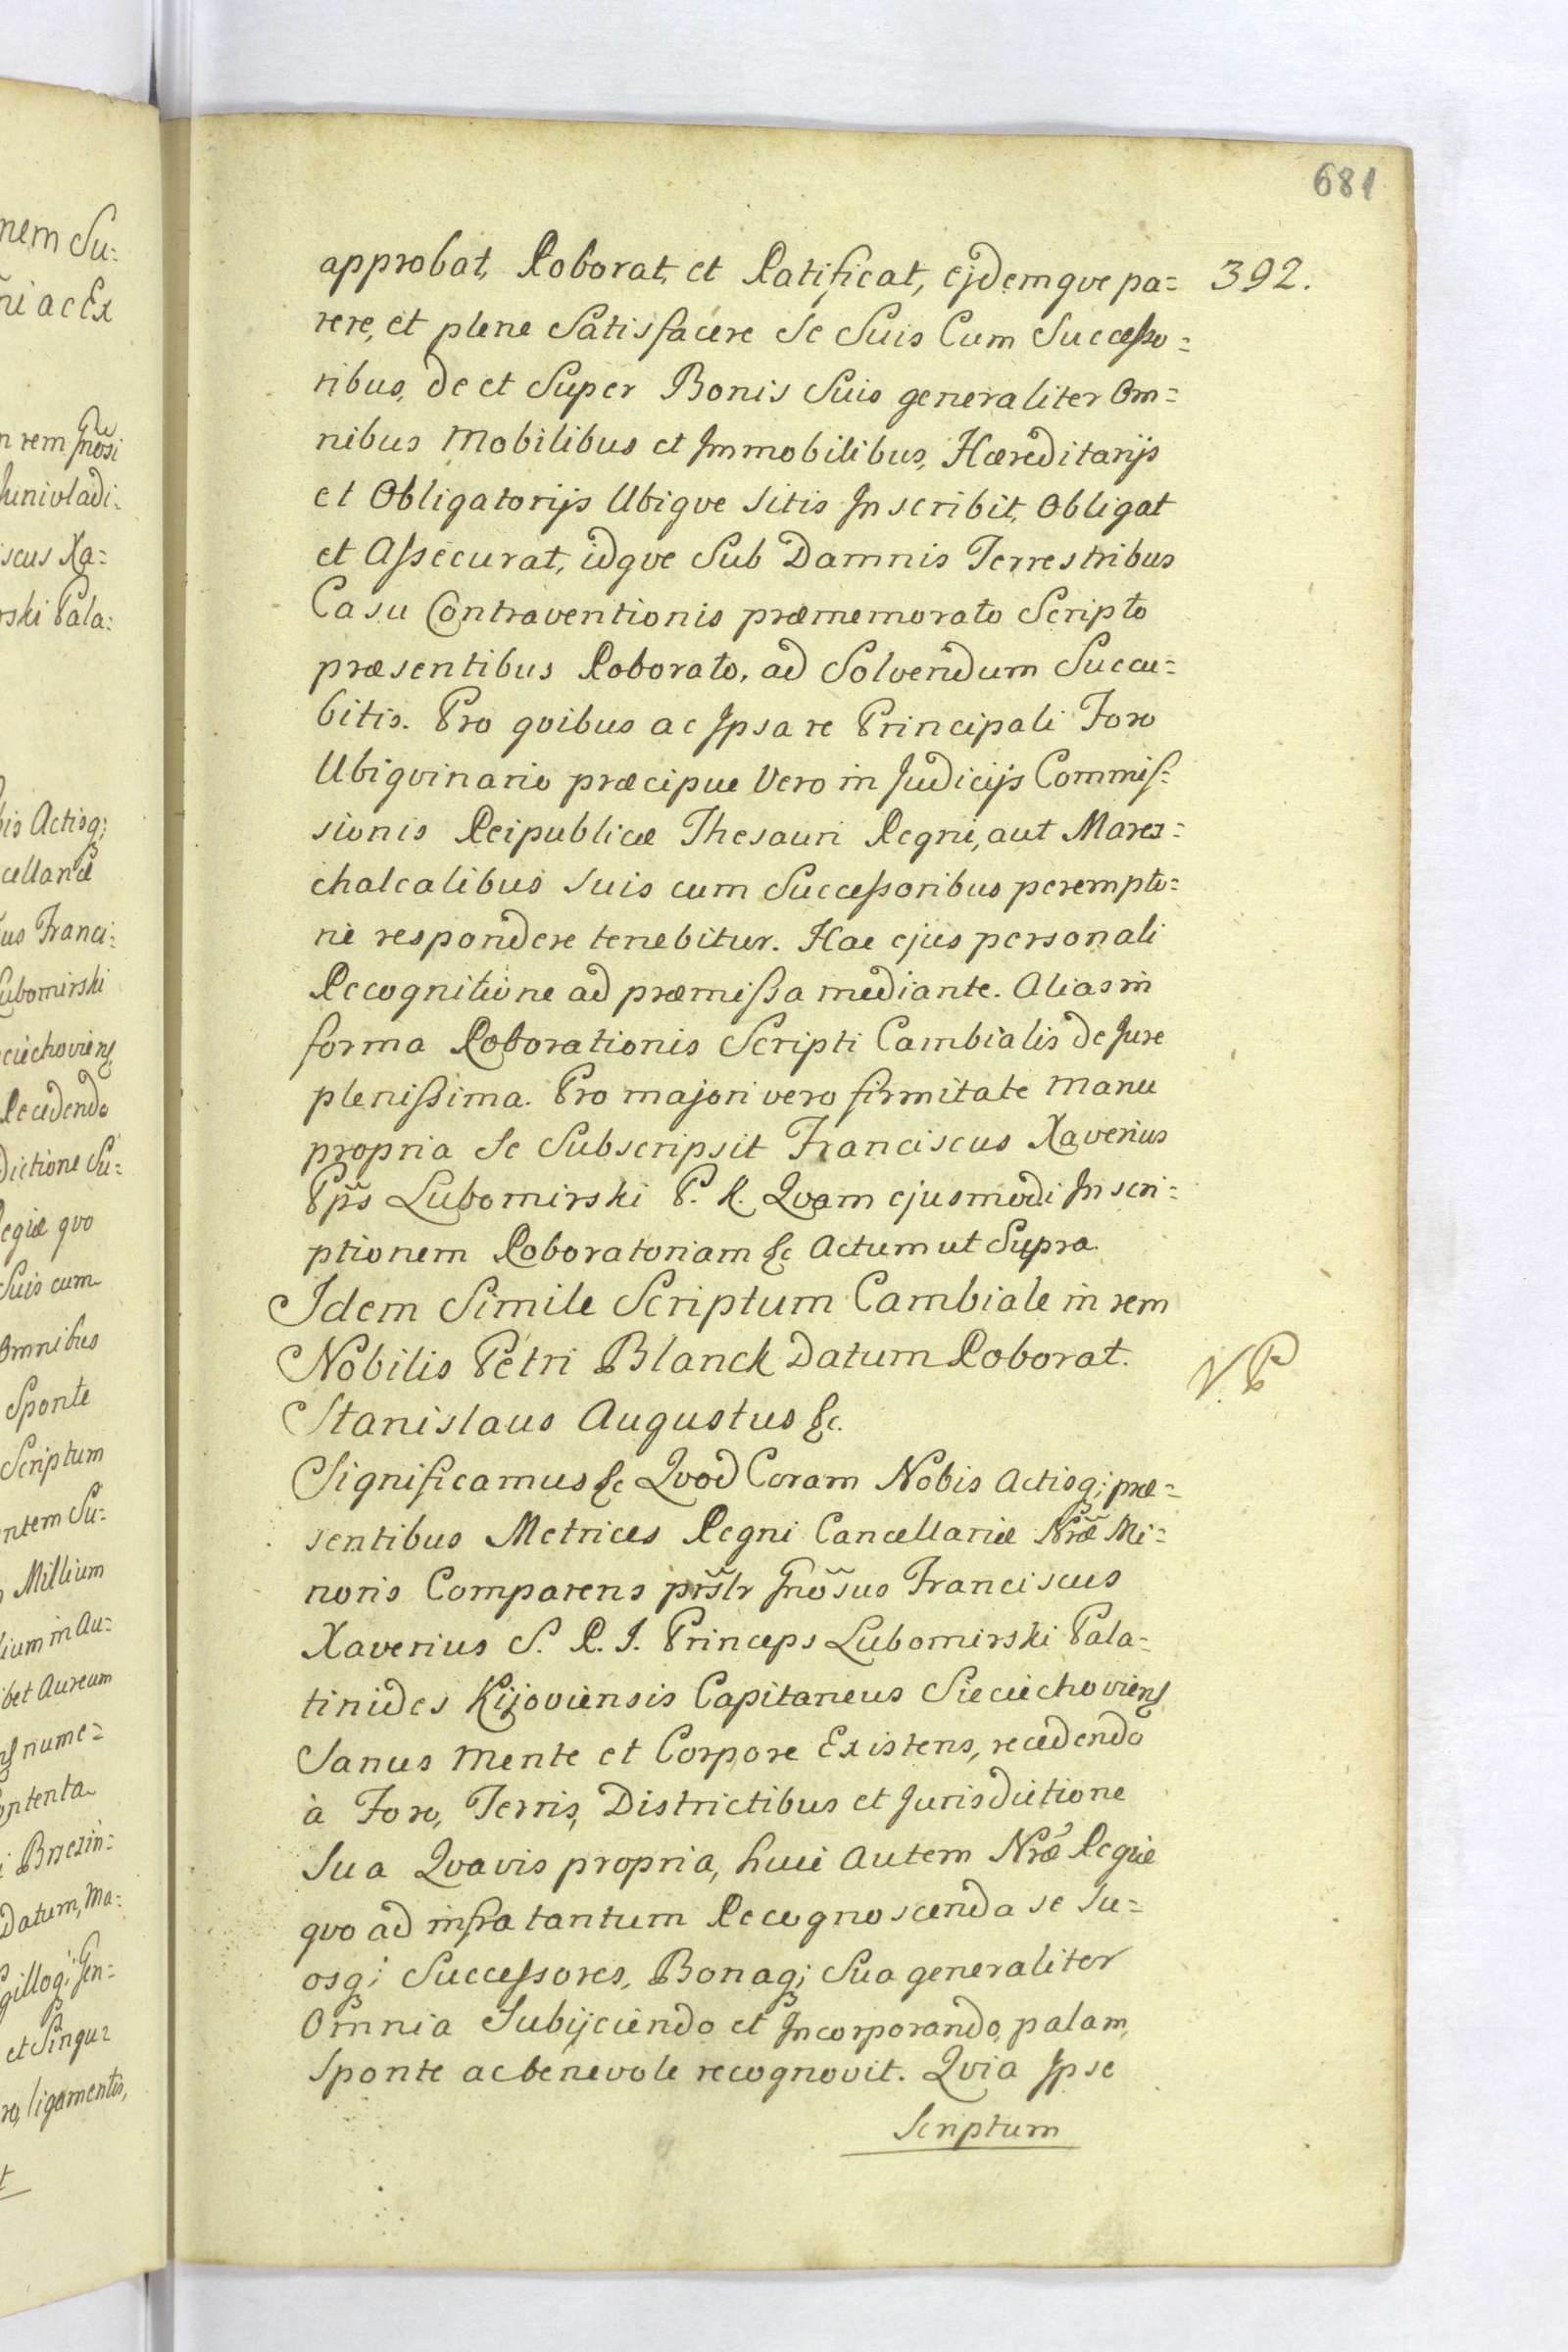 681
392.
approbat, Roborat, et Ratificat, ejdemqve pa=
rere, et plene Satisfacere Se Suis Cum Successo=
ribus, de et Super Bonis Suis generaliter Om=
nibus Mobilibus et Immobilibus, Hæreditarijs
et Obligatorijs Ubiqve sitis Inscribit, Obligat
et Assecurat, idqve Sub Damnis Terrestribus
Casu Contraventionis præmemorato Scripto
præsentibus Roborato, ad Solvendum Succu=
bitis. Pro qvibus ac Ipsa re Principali Foro
Ubiqvinario præcipue Vero in Judicijs Commis=
sionis Reipublicæ Thesauri Regni, aut Mares=
chalcalibus suis cum Successoribus perempto=
rie respondere tenebitur. Hac ejus personali
Recognitione ad præmissa mediante. Alias in
forma Roborationis Scripti Cambialis de Jure
plenissima. Pro majori vero firmitate manu
propria Se Subscripsit Franciscus Xaverius
Pp̃s Lubomirski P. K. Qvam ejusmodi Inscri=
ptionem Roboratoriam &c Actum ut Supra
Idem Simile Scriptum Cambiale in rem
Nobilis Petri Blanck Datum Roborat.
V. P
Stanislaus Augustus &c.
Significamus &c Qvod Coram Nobis Actisq; præ=
sentibus Metrices Regni Cancellariæ Nr̃æ Mi=
noris Comparens pr̃slr Gnõsus Franciscus
Xaverius S. R. I. Princeps Lubomirski Pala=
tinides Kijoviensis Capitaneus Sieciechoviens
Sanus mente et Corpore Existens, recedendo
à Foro, Terris, Districtibus et Jurisdictione
Sua Qvavis propria, huic autem Nr̃æ Regiæ
qvo ad infra tantum Recognoscenda se su=
osq; Successores, Bonaq; Sua generaliter
Omnia Subijciendo et Incorporando, palam,
Sponte ac benevole recognovit. Qvia Ipse
Scriptum